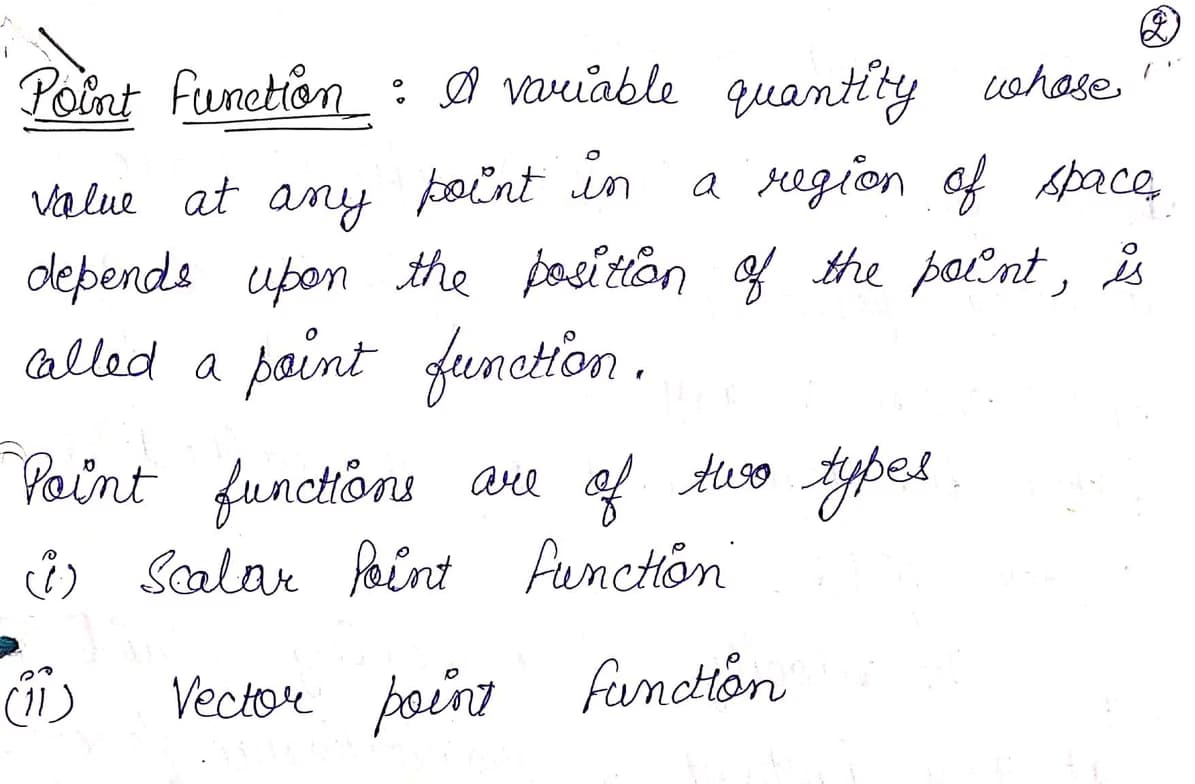 ②
Point function : A variable quantity whose
value at any point in a region of space
depends upon the position of the point, is
called a point function.
Point functions are of two types
(i) Scalar Point function
(ii) Vector point function